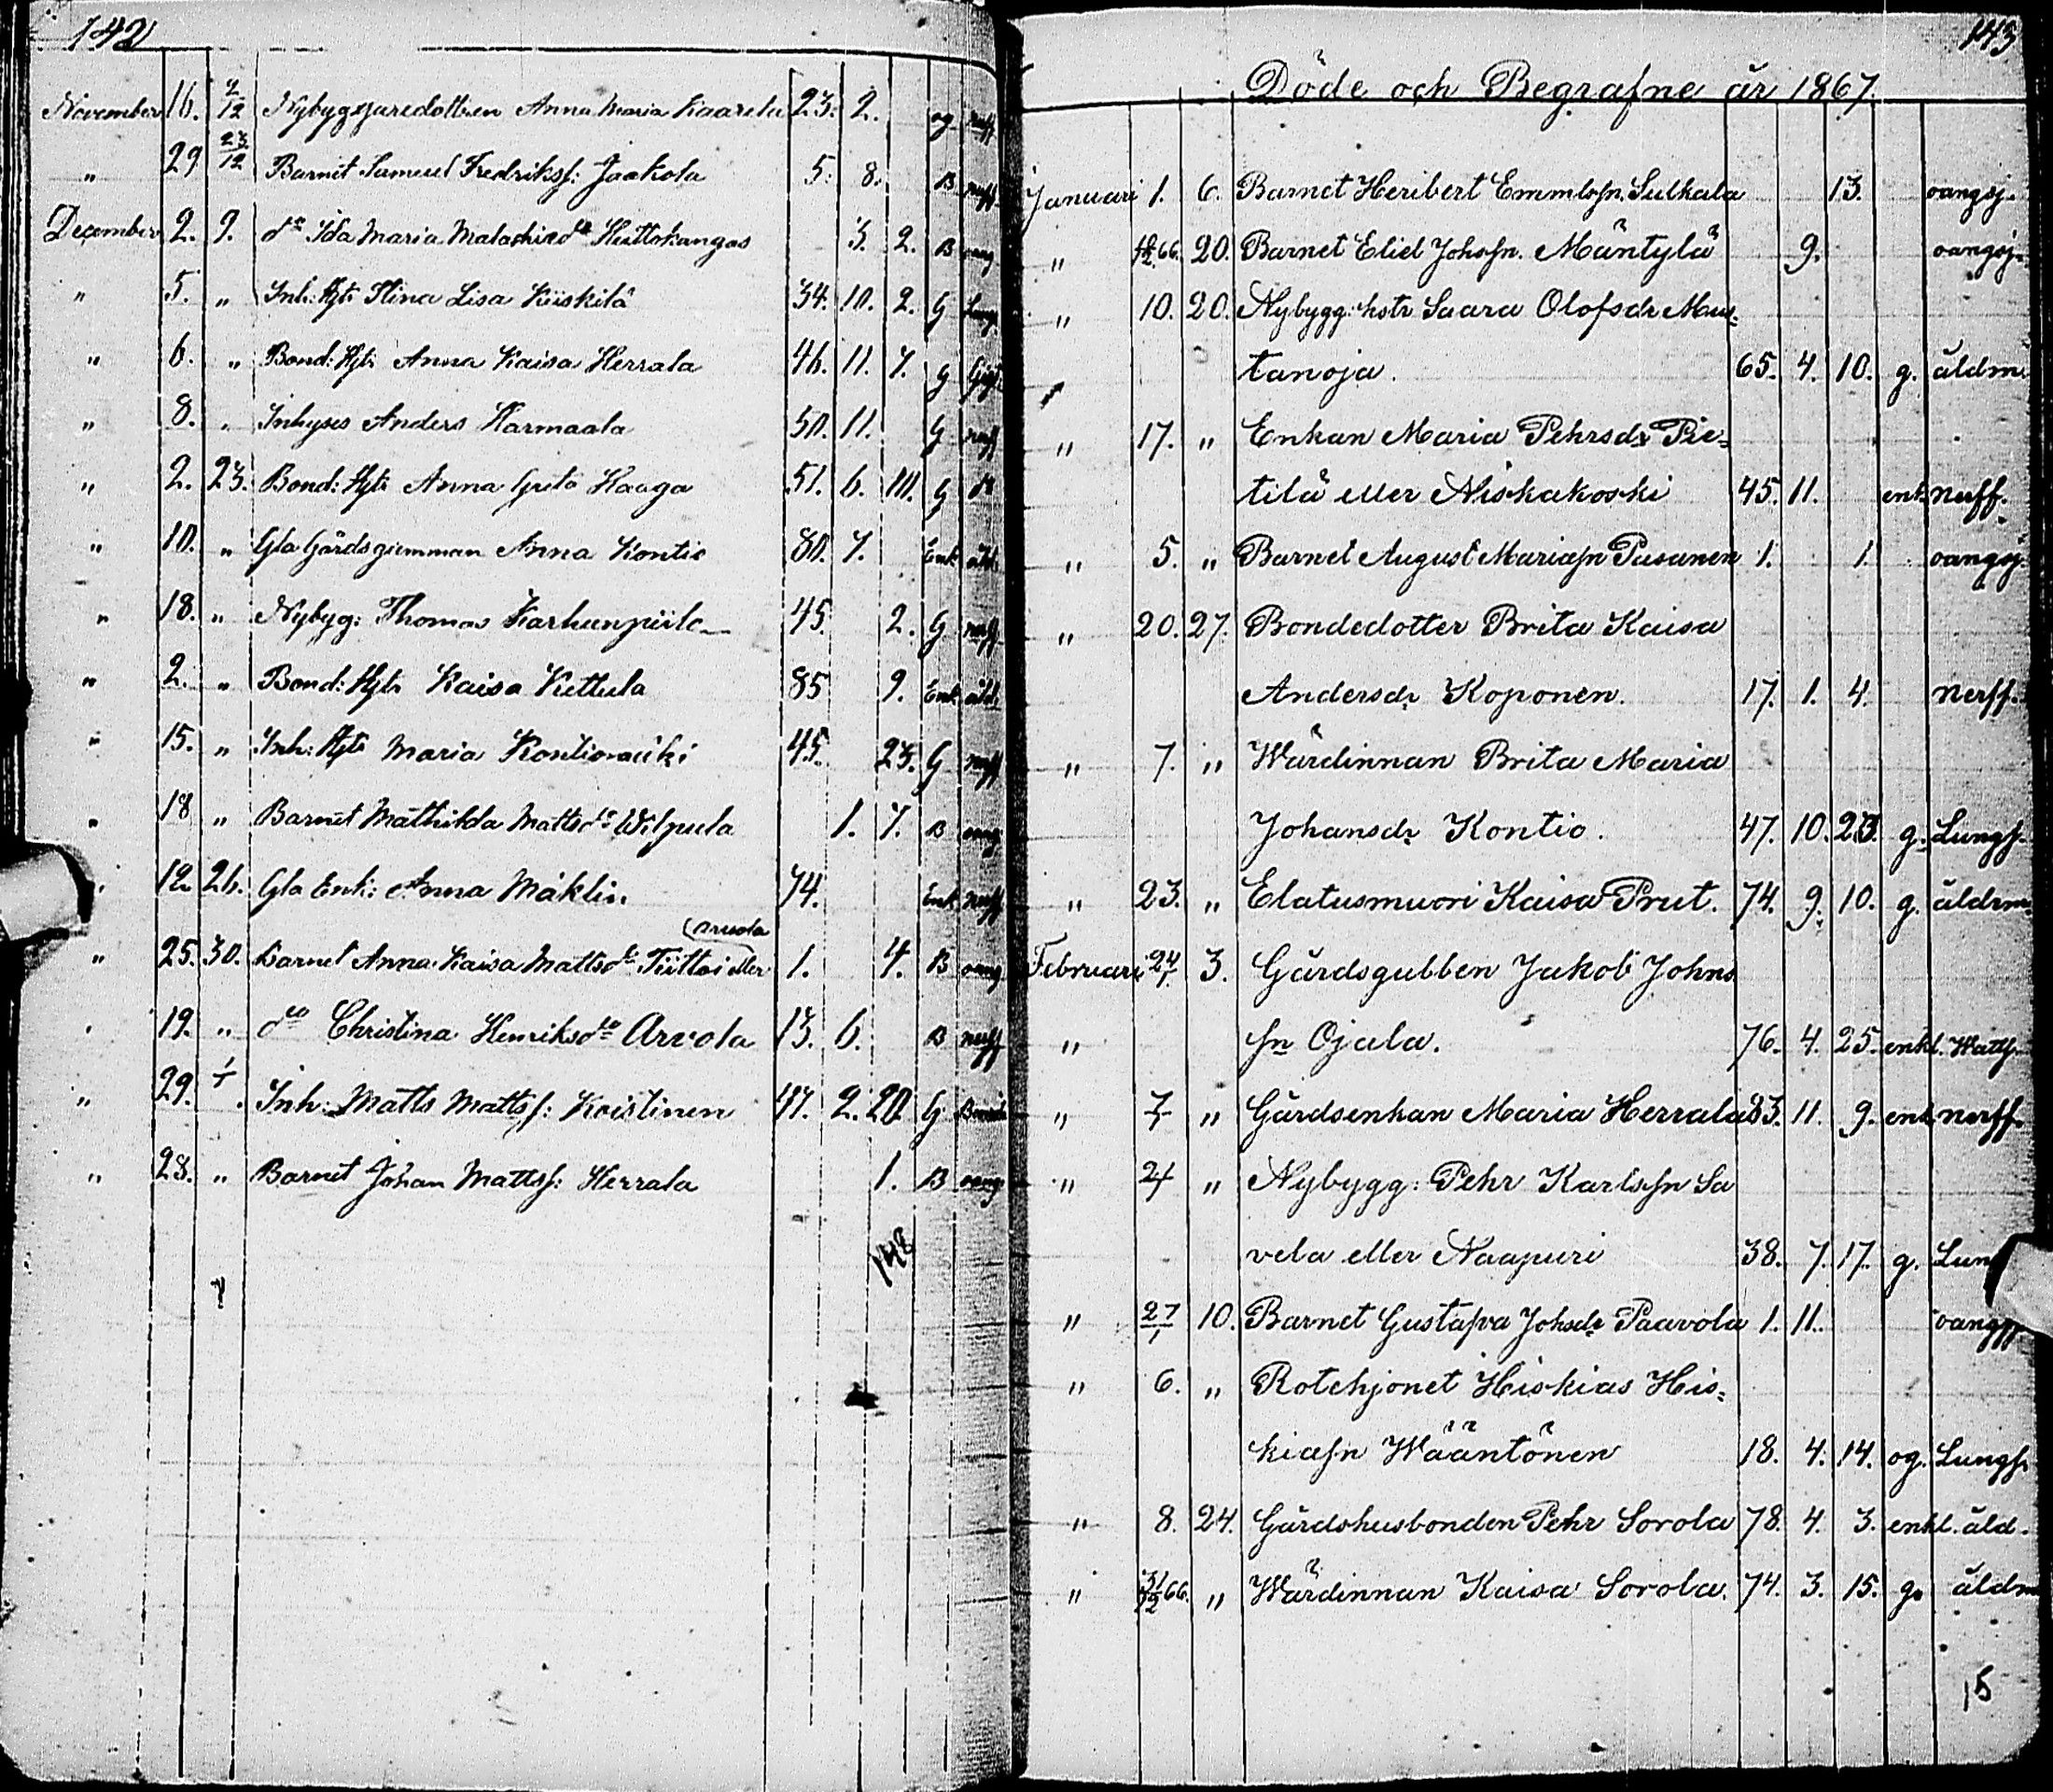 142
November 16. 2/12 Nybyggaredottren Anna Maria Kaarela 23. 2. og nerff
" 29 23/12 Barnet Samuel Fredrikss: Jaakola 5. 8. B nerff
December 2. 9. do Ida Maria Malachiasdr Huttokangas 3. 2. B oang
" 5. " Inh: Hjt: Stina Lisa Kiiskilä 34. 10. 2. G Lung
" 6. " Bond: Hjt: Anna Kaisa Herrala 46. 11. 7. G
" 8. " Inhyses Anders Karmaala 50. 11. G nerff
" 2. 23. Bond: Hjt: Anna Greta Haaga 51. 6. 10. G do
" 10. " Gla Gårdsgumman Anna Kontio 80. 7. Enk åld.
" 18. " Nybyg: Thomas Karhunpiilo 45. 2. G nerff
" 2. " Bond: Hjt: Kaisa Kettula 85 9. Enk åld.
" 15. " Inh: Hjt: Maria Kontioraiiki 45. 23. G nerff
" 18 " Barnet Mathilda Mattsdr Wilpula 1. 7. B oang
" 12. 26. Gla Enk: Anna Mäklin 74. Enk nerff
arvola
" 25. 30. Barnet Anna Kaisa Mattsdr Tiittoi eller 1. 4. B oang
" 19. " do Christina Henriksdr Arvola 13. 6. B nerff
" 29. 1/1. Inh: Matts Mattss: Koistinen 47. 2. 20 G
" 28. " Barnet Johan Mattss: Herrala 1. B oang
148
143
Döde och Begrafne år 1867.
Januari 1. 6. Barnet Heribert Emmlssn. Sulkala 13. oangsj.
" 66. 20. Barnet Eliel Johssn. Mäntylä 9. oangsj.
" 10. 20. Nybygg: hstr Saara Olofsdr Mus-
tanoja. 65. 4. 10. g. åldrm.
" 17. " Enkan Maria Pehrsdr Pie-
tilä eller Niskakoski 45. 11. enk. nerff.
" 5. " Barnet August Mariæsn Pasanen 1. 1. oangsj.
" 20. 27. Bondedotter Brita Kaisa
Andersdr Koponen. 17. 1. 4. nerff.
" 7. " Wärdinnan Brita Maria
Johansdr Kontio. 47. 10. 23. g. Lungs.
" 23. " Elatusmuori Kaisa Prut. 74. 9. 10. g. åldrm.
Februari 24/1. 3. Gårdsgubben Jakob Johns
" sn Ojala. 76. 4. 25. enkl. Watts.
" 7 " Gårdsenkan Maria Herrala 83. 11. 9. enk nerff.
" 24 " Nybygg: Pehr Karlssn Sa
vela eller Naapuri 38. 7. 17. g. Lun
" 27/1 10. Barnet Gustafva Johsdr Paavola 1. 11. oangsj.
" 6. " Rotehjonet Hiskias His-
kiæsn Wääntönen 18. 4. 14. og. Lungs.
" 8. 24. Gårdshusbonden Pehr Sorola 78. 4. 3. enkl. åld.
" 31/12 66. " Wärdinnan Kaisa Sorola. 74. 3. 15. g. åldrm
15